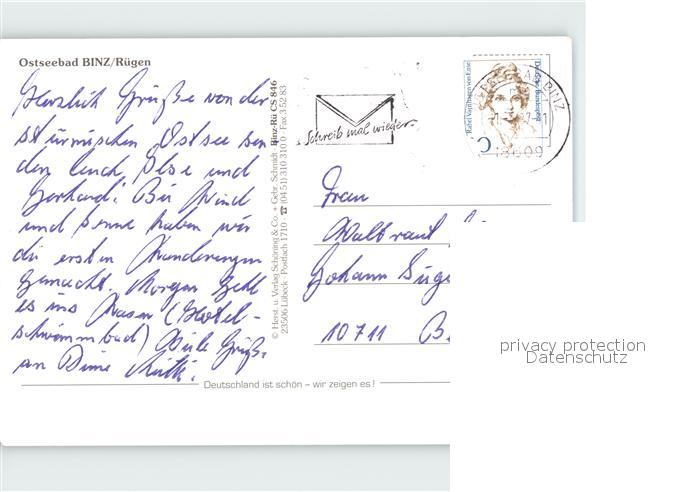 Ostseebad BINZ/Rügen
Herzlich Grüße von der
stürmischen Ostsee sen-
den Euch, Ilse und
Gerhard. Bei Wind
und Sonne haben wir
die ersten Wanderungen
gemacht. Morgen geht
es ins Wasser (Hotel-
schwimmbad) Viele Grüße
an Deine
Deutschland ist schön – wir zeigen es!
© Herst. u. Verlag Schöning & Co. + Gebr. Schmidt Binz-Rü CS 846
23506 Lübeck · Postfach 1710 · ☎ (04 51) 310 310 0 · Fax 3 52 83
Schreib mal wieder
Rahel Varnhagen von Ense
Deutsche Bundespost
BINZ
18609
Frau
Waltraut
Johann
10711 B
privacy protection
Datenschutz